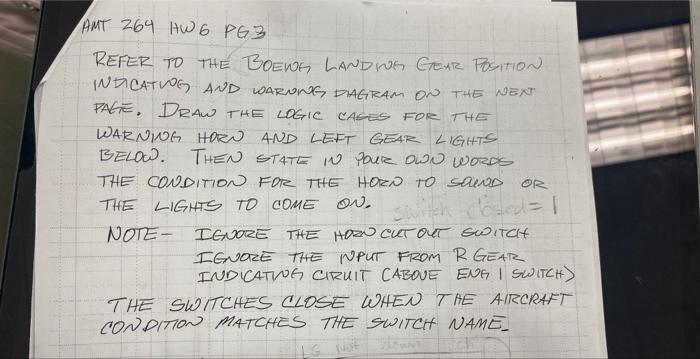 AMT 264 HW6 PG3
REFER TO THE BOEING LANDING GEAR POSITION
INDICATING AND WARNING DIAGRAM ON THE NEXT
PAGE. DRAW THE LOGIC CASES FOR THE
WARNING HORN AND LEFT GEAR LIGHTS
BELOW. THEN STATE IN YOUR OWN WORDS
THE CONDITION FOR THE HORN TO SOUND OR
THE LIGHTS TO COME ON.
switch closed = 1
NOTE - IGNORE THE HORN CUT OUT SWITCH
IGNORE THE INPUT FROM R GEAR
INDICATING CIRUIT (ABOVE ENG 1 SWITCH)
THE SWITCHES CLOSE WHEN THE AIRCRAFT
CONDITION MATCHES THE SWITCH NAME.
LG Not down